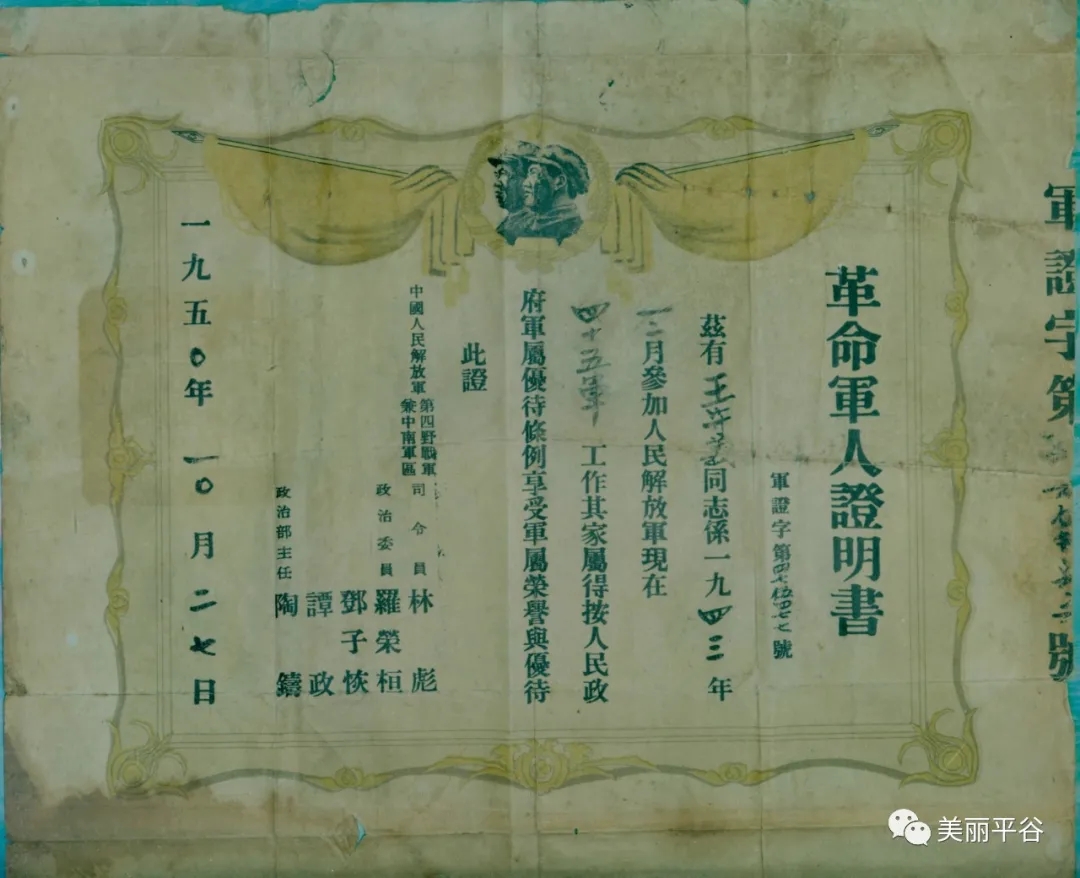 軍證字第
號
革命軍人證明書
軍證字第 號
茲有王 同志係一九四三年
二月參加人民解放軍現在
四十五軍 工作其家屬得按人民政
府軍屬優待條例享受軍屬榮譽與優待
此證
中國人民解放軍 第四野戰軍
兼中南軍區
司令員 林彪
政治委員 羅榮桓
鄧子恢
譚政
政治部主任 陶鑄
一九五〇年一〇月二七日
美丽平谷